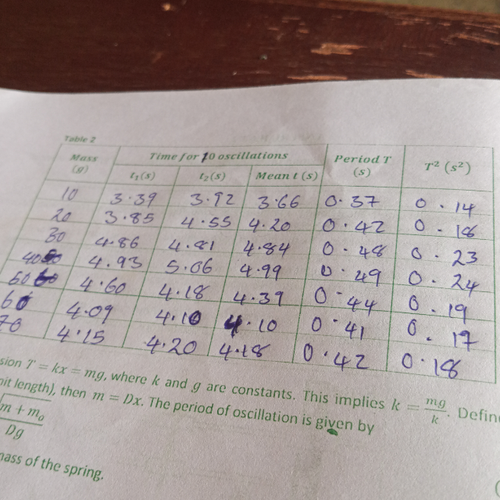 Table 2
Mass (g) Time for 10 oscillations Period T (s) T² (s²)
t₁(s) t₂(s) Mean t (s)
10 3.39 3.92 3.66 0.37 0.14
20 3.85 4.55 4.20 0.42 0.18
30 4.86 4.81 4.84 0.48 0.23
40 4.93 5.06 4.99 0.49 0.24
50 4.60 4.18 4.39 0.44 0.19
60 4.09 4.10 4.10 0.41 0.17
70 4.15 4.20 4.18 0.42 0.18
sion T = kx = mg, where k and g are constants. This implies k = mg/k. Define
nit length), then m = Dx. The period of oscillation is given by
m + mₒ
Dg
mass of the spring.